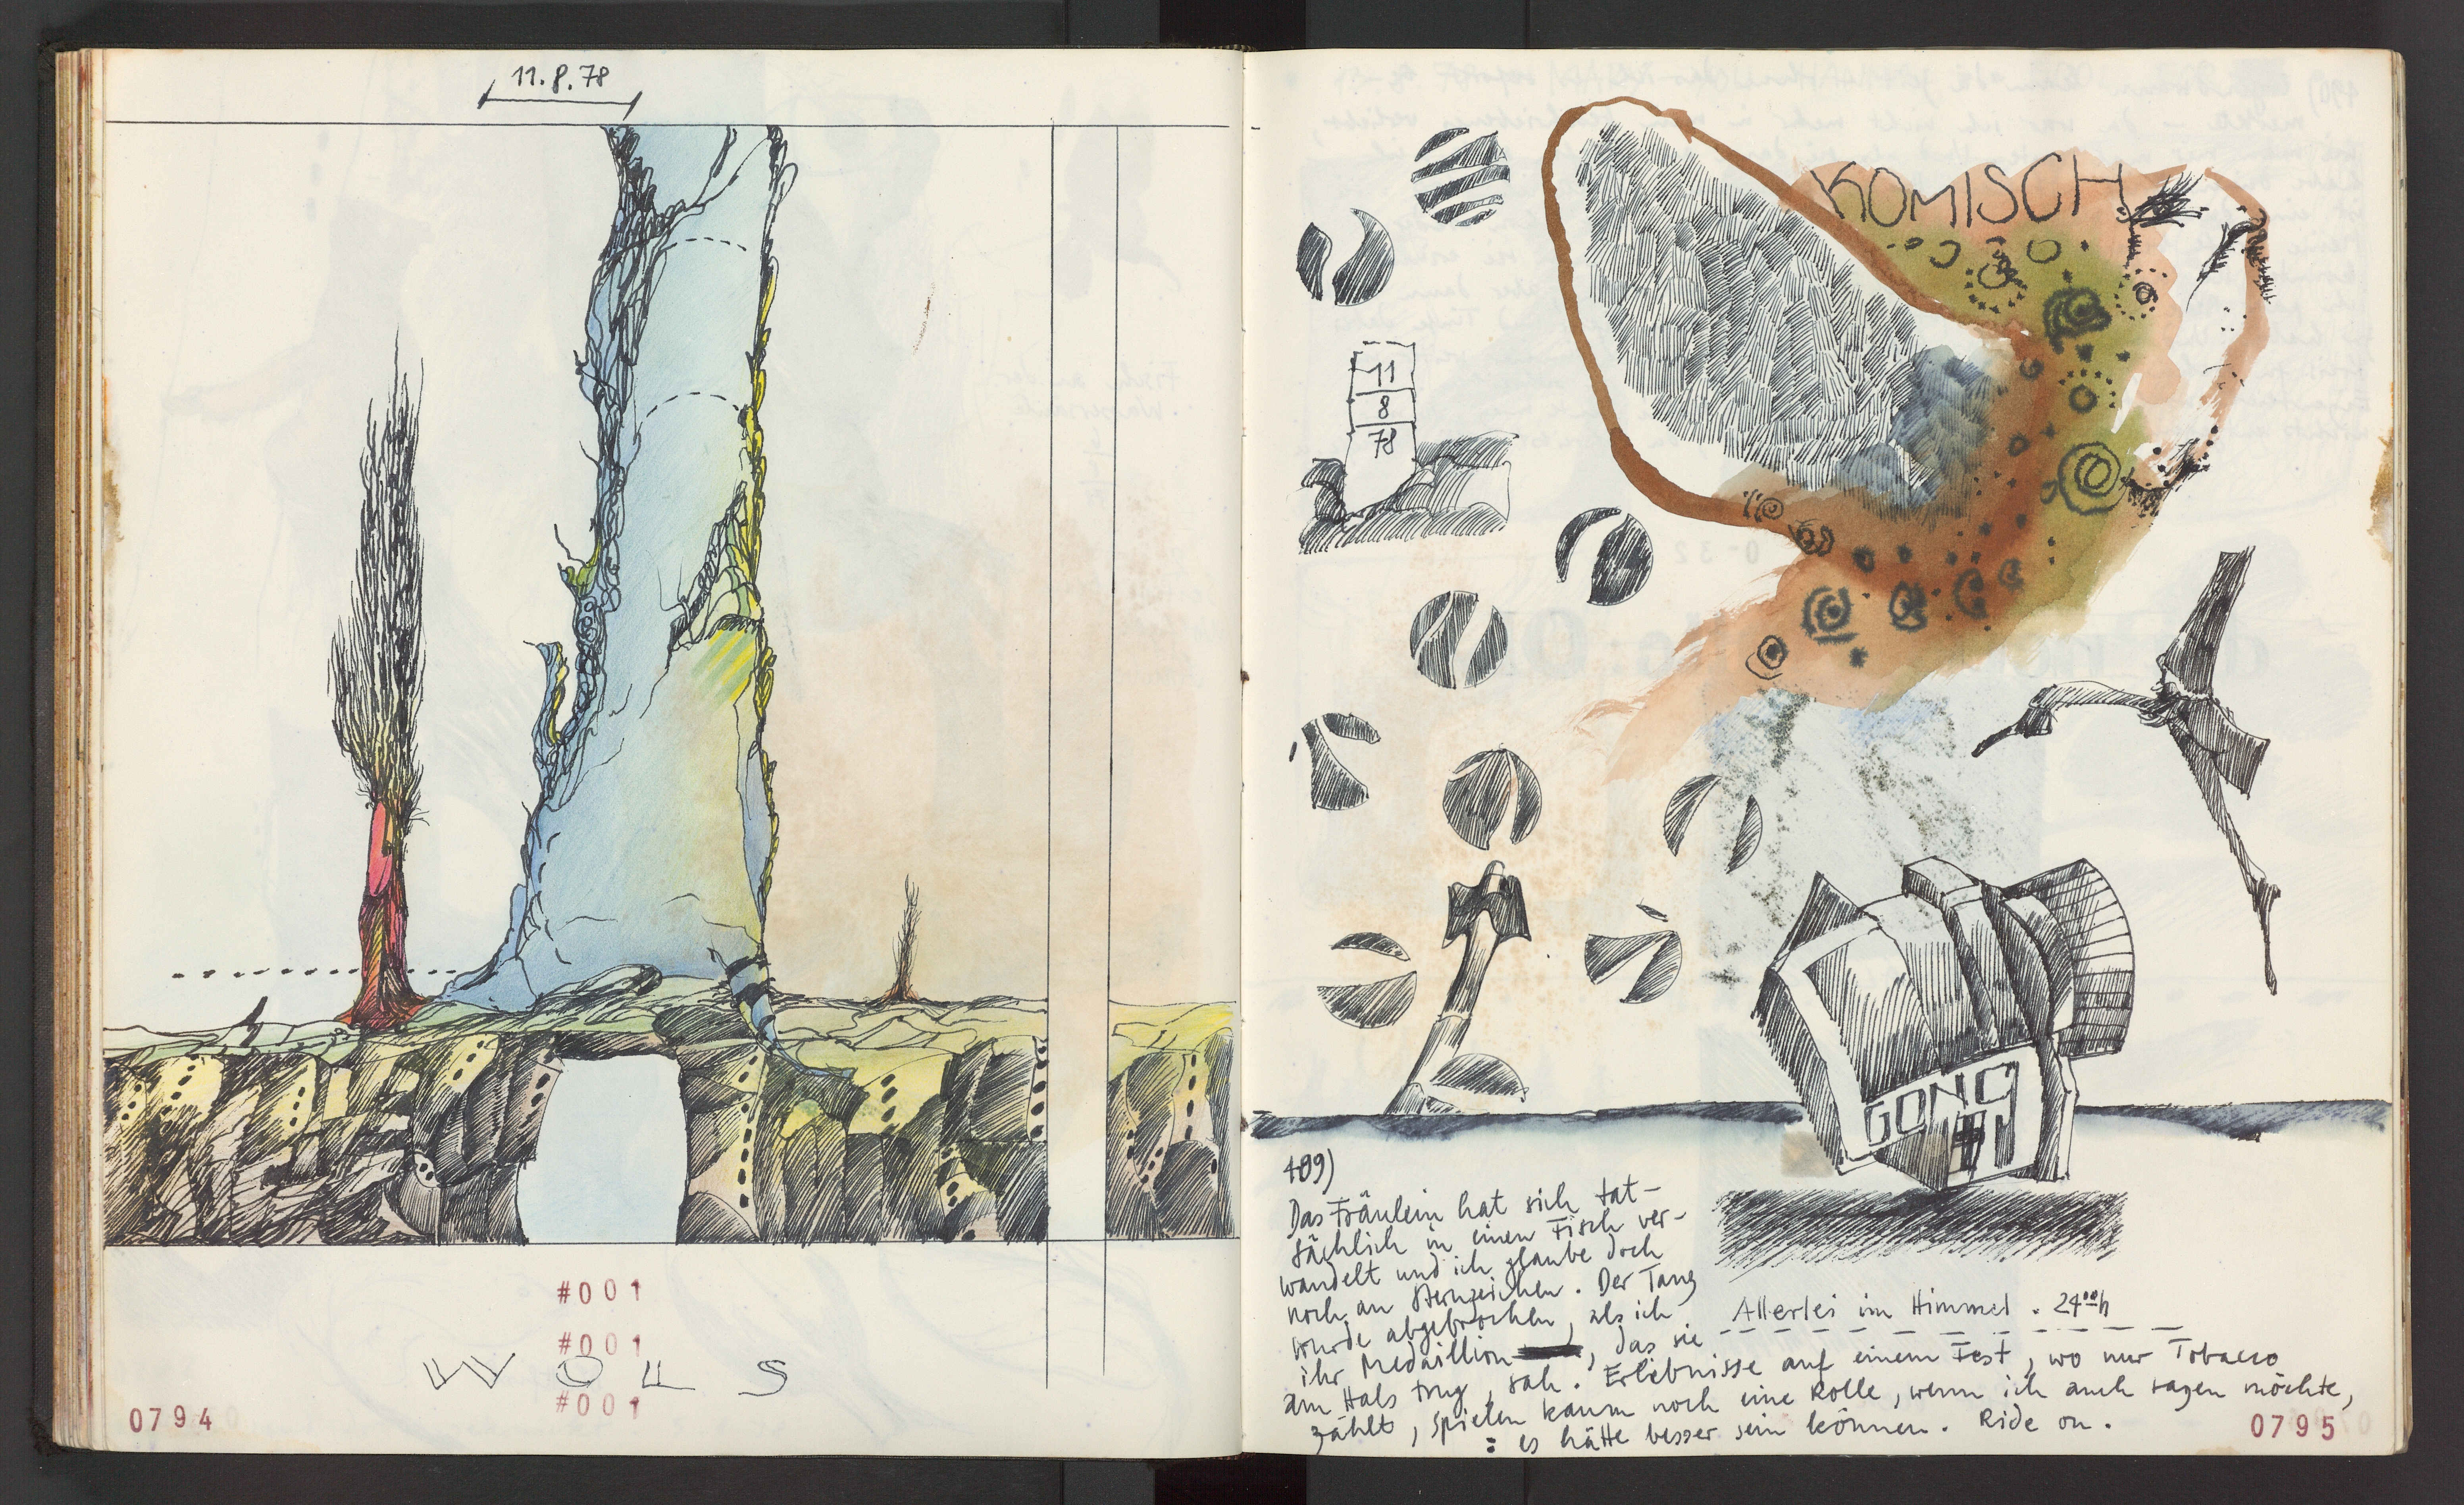 11.8.78
#001
#001
WOLS
#001
0794
KOMISCH
11
8
78
GONG
489)
Das Fräulein hat sich tat-
sächlich in einen Fisch ver-
wandelt und ich glaube doch
noch an Sternzeichen. Der Tang
wurde abgebrochen, als ich
ihr Medaillion, das sie
am Hals trug, sah. Erlebnisse auf einem Fest, wo nur Tobacco
zählt, spielen kaum noch eine Rolle, wenn ich auch sagen möchte,
: es hätte besser sein können. Ride on.
Allerlei im Himmel. 24⁰⁰h
0795